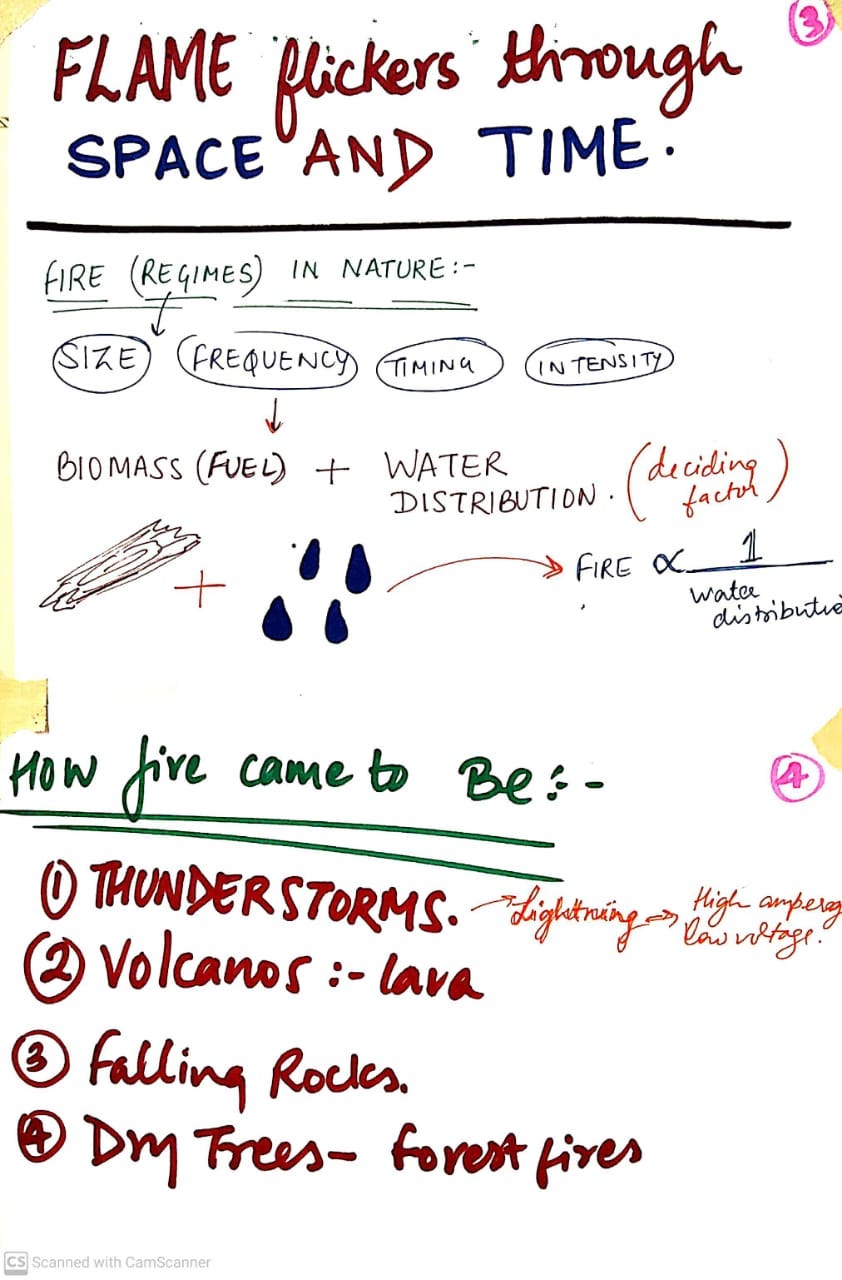 3
FLAME flickers through
SPACE AND TIME.
FIRE (REGIMES) IN NATURE:-
SIZE FREQUENCY TIMING INTENSITY
BIOMASS (FUEL) + WATER DISTRIBUTION. (deciding factor)
+
FIRE ∝ 1
water
distributio
How fire came to Be:-
4
① THUNDERSTORMS. → Lightning → High amperag
low voltage.
② Volcanos :- lava
③ falling Rocks.
④ Dry Trees - forest fires
CS Scanned with CamScanner